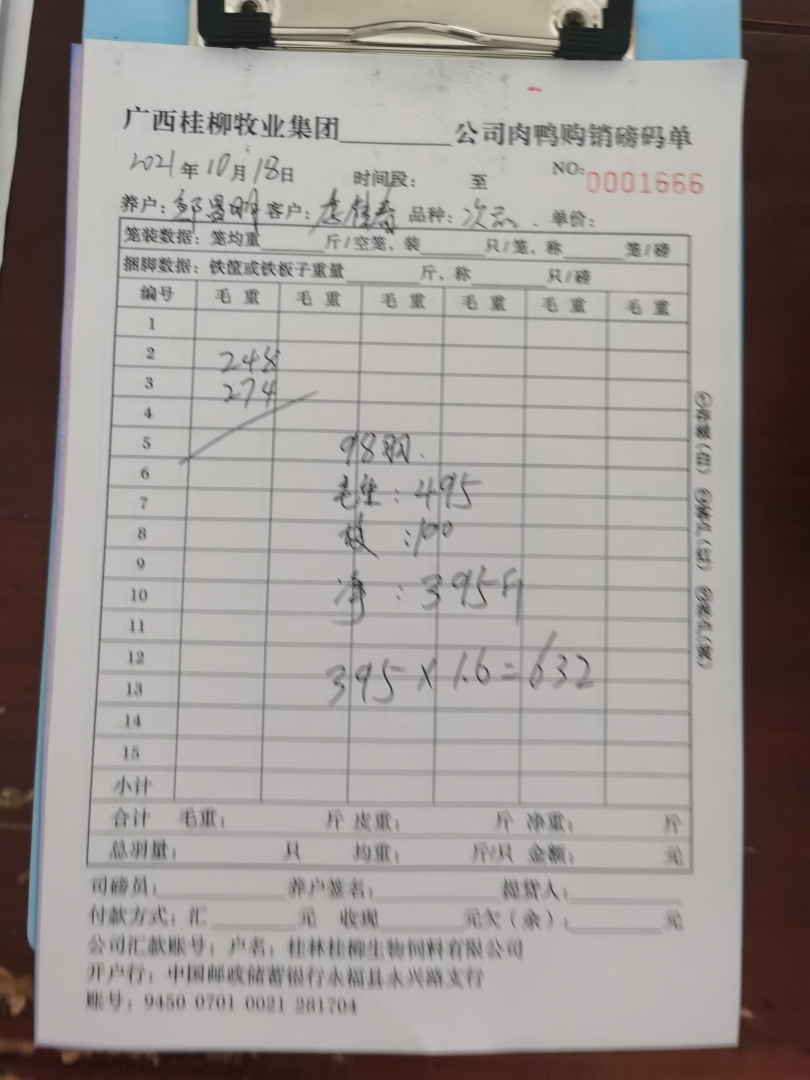 广西桂柳牧业集团________公司肉鸭购销磅码单
2021年10月18日 时间段: 至 NO:0001666
养户: 昌明 客户: 品种:次品. 单价:
笼装数据:笼均重______斤/空笼、装______只/笼、称______笼/磅
捆脚数据:铁筐或铁板子重量______斤、称______只/磅
编号 毛重 毛重 毛重 毛重 毛重 毛重
1
2 248
3 274
4
5 98羽.
6
7 毛重:495
8 :100
9
10 净:395斤
11
12
13 395×1.6=632
14
15
小计
合计 毛重: 斤 皮重: 斤 净重: 斤
总羽量: 只 均重: 斤/只 金额: 元
司磅员:________ 养户签名:________ 提货人:________
付款方式:汇______元 收现______元欠(余):______元
公司汇款账号:户名:桂林桂柳生物饲料有限公司
开户行:中国邮政储蓄银行永福县永兴路支行
账号:9450 0701 0021 281704
①存根(白) ②客户(红) ③养户(黄)